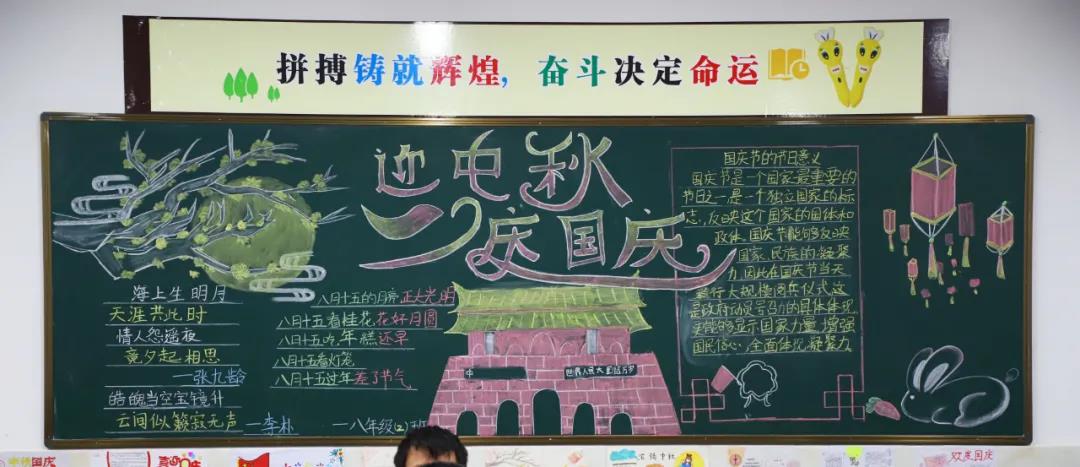 拼搏铸就辉煌，奋斗决定命运
迎中秋
庆国庆
海上生明月
天涯共此时
情人怨遥夜
竟夕起相思
—张九龄
皓魄当空宝镜升
云间似籁寂无声
—李朴
八月十五的月亮正大光明
八月十五看桂花花好月圆
八月十五吃年糕还早
八月十五看灯笼
八月十五过年差了节气
—八年级(2)班
国庆节的节日意义
国庆节是一个国家最重要的
节日之一，是一个独立国家的标
志，反映这个国家的国体和
政体。国庆节能够反映
国家、民族的凝聚
力，因此在国庆节当天
举行大规模阅兵仪式这
是政府动员号召力的具体体现
更能够显示国家力量，增强
国民信心，全面体现凝聚力
世界人民大团结万岁
双庆国庆